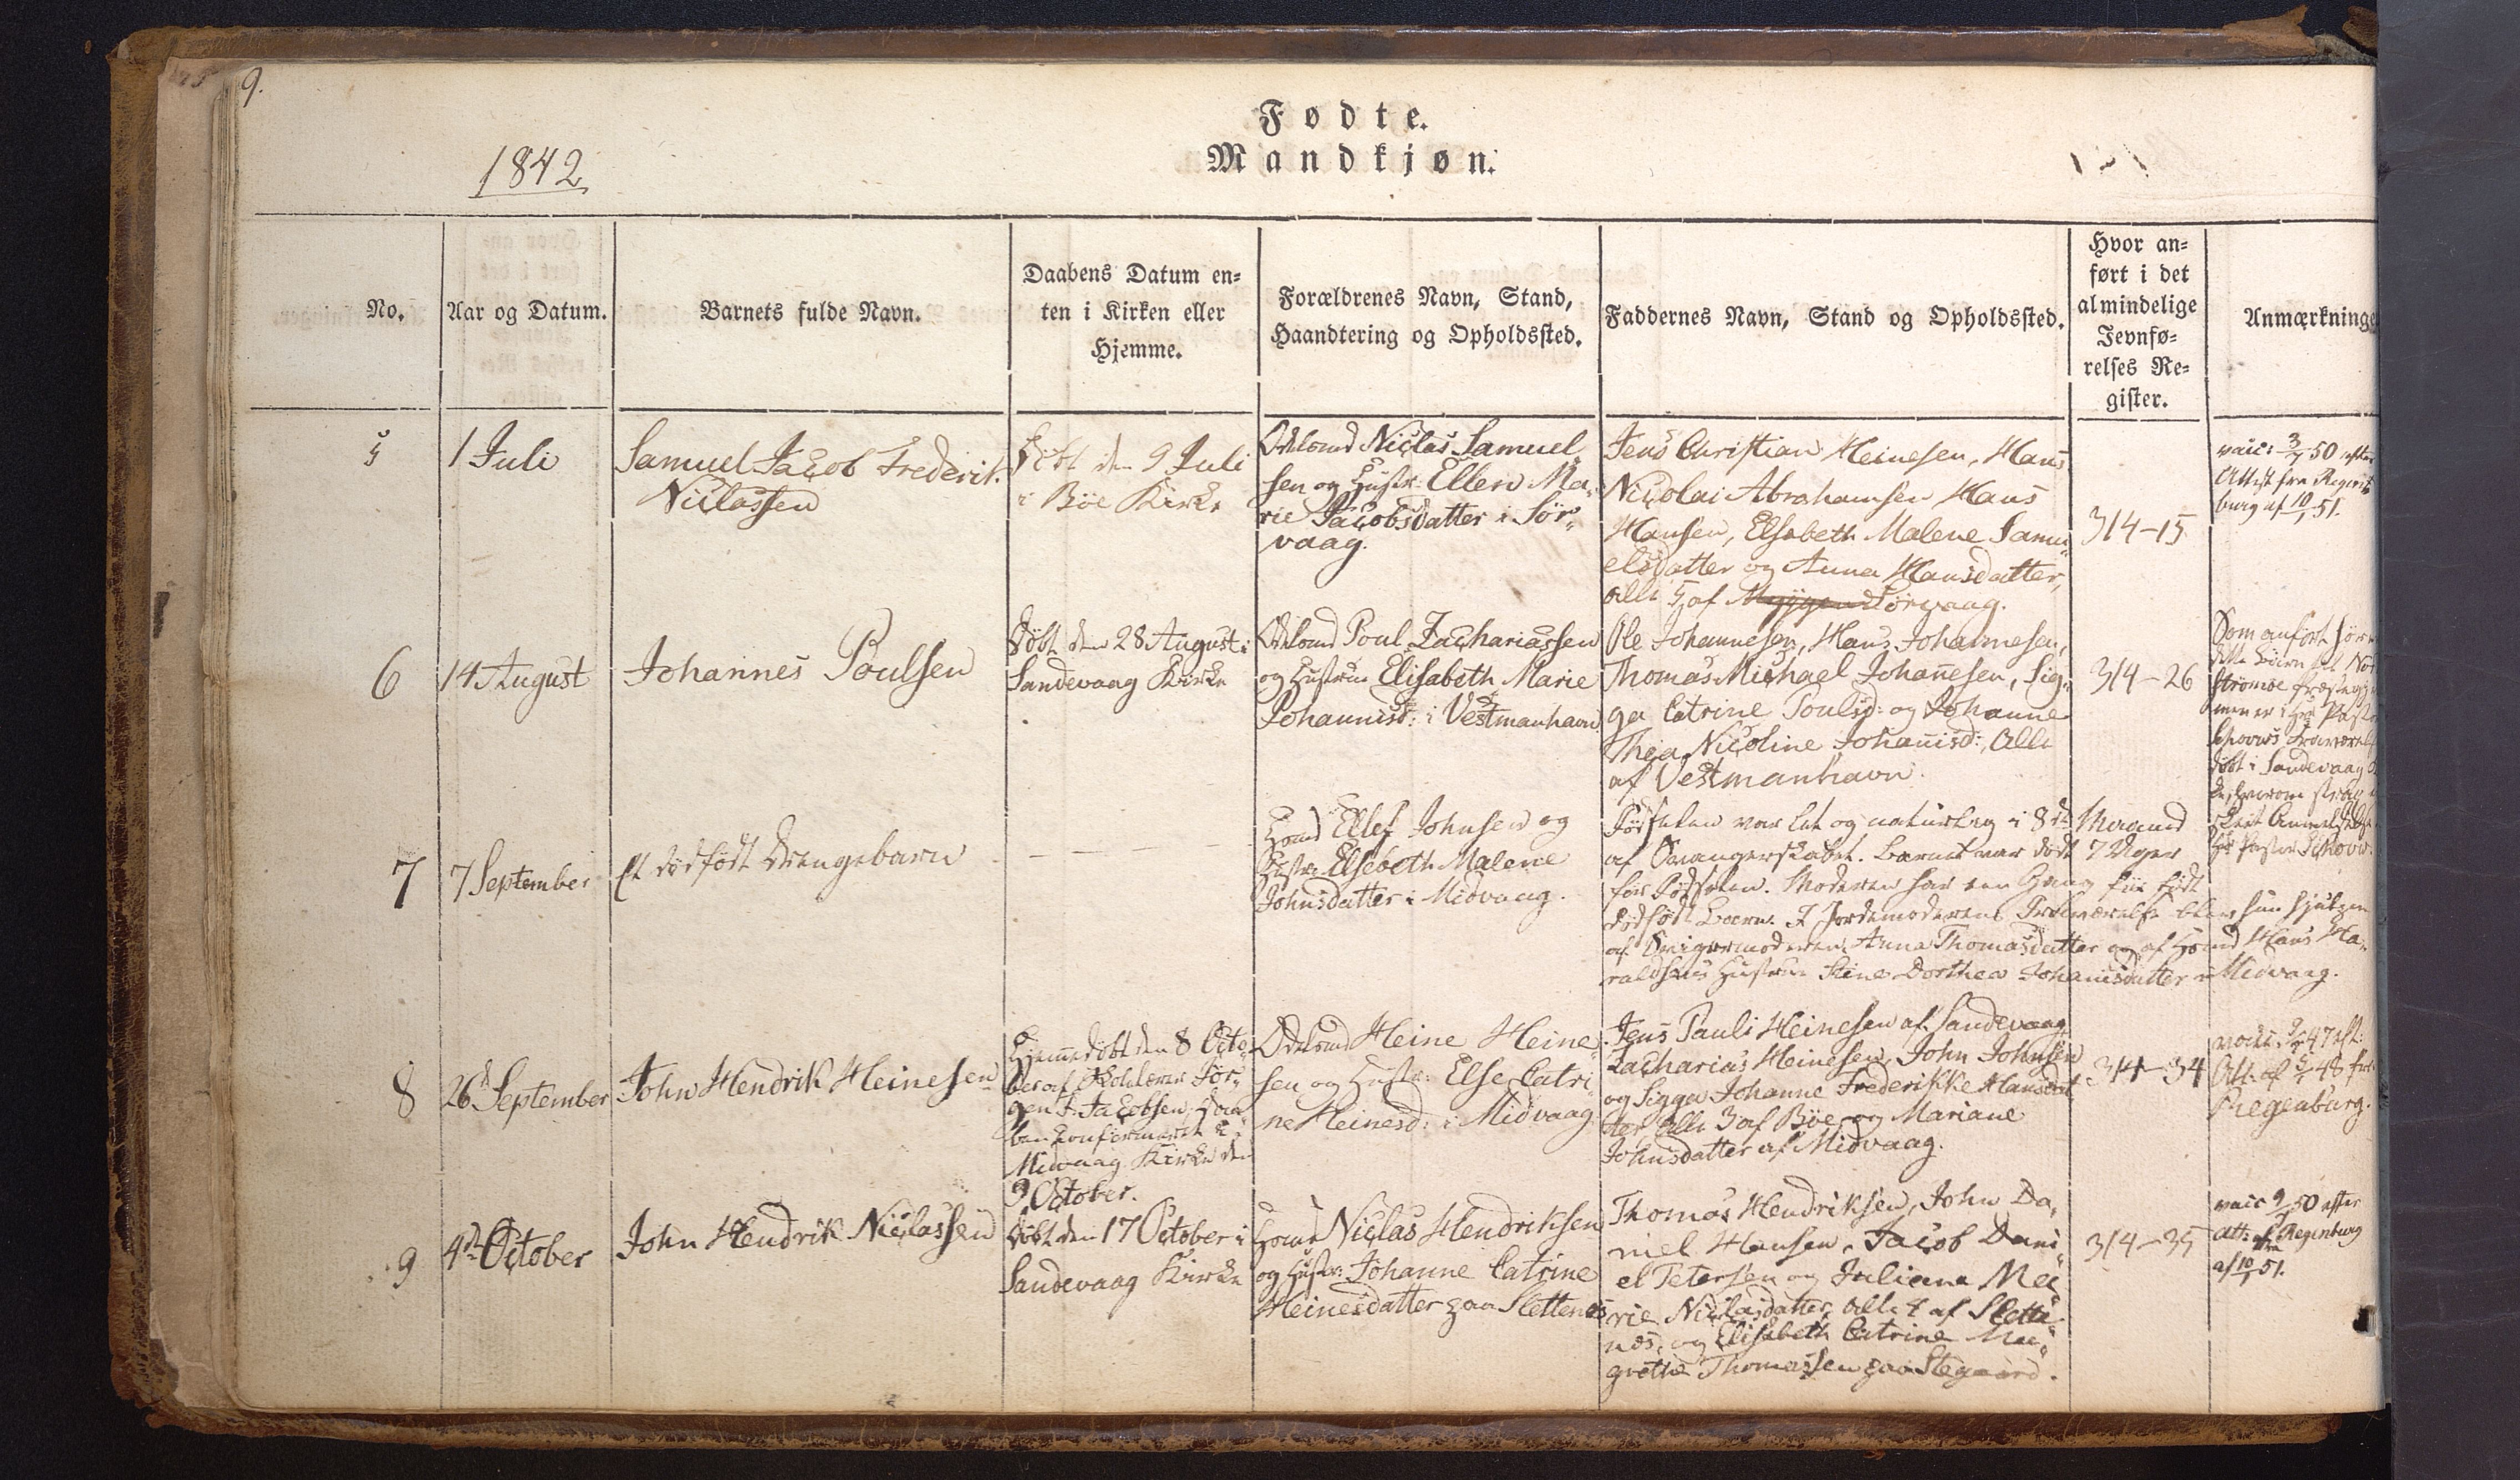 9.
Fødte.
Mandkjøn.
1842
No.
Aar og Datum.
Barnets fulde Navn.
Daabens Datum en=
ten i Kirken eller
Hjemme.
Forældrenes Navn, Stand,
Haandtering og Opholdssted.
Faddernes Navn, Stand og Opholdssted.
Hvor an=
ført i det
almindelige
Jevnfø=
relses Re=
gister.
Anmærkninge
5
1 Juli
Samuel Jacob Frederik
Niclassen
Døbt den 9 Juli
i Bøe Kirke
Odelsmd Niclas Samuel
sen og Hustr: Ellen Ma,
rie Jacobsdatter i Sør,
vaag.
Jens Christian Heinesen, Hans
Nicolai Abrahamsen Hans
Hansen, Elsebeth Malene Samu
elsdatter og Anna Hansdatter,
alle 5 af Sørvaag.
314-15
vacc: 3/7 50 efter
Attest fra Regens
burg af 10/1 51.
6
14 August
Johannes Poulsen
Døbt den 28 August i
Sandevaag Kirke
Odelsmd Poul Zachariassen
og Hustrue Elisabeth Marie
Johannisd: i Vestmanhavn
Ole Johannesen, Hans Johannesen,
Thomas Michael Johanesen, Sig,
ga Catrine Poulsd: og Johanne
Thea Nicoline Johanisd:, Alle
af Vestmanhavn.
314-26
Som anført hører
dette Børn til Nor
strømøe
døbt i Sandevaag
7
7 September
Et dødfødt Drengebarn
Huusmd Ellef Johnsen og
Hustr: Elsebeth Malene
Johnsdatter i Midvaag.
Fødselen var let og naturlig i 8de Maaned
af Svangerskabet. Barnet var dødt 7 Uger
før Fødselen. Moderen har een Gang før født
dødfødt Barn. I Jordemoderens Fraværelse blev hun hjulpen
af Svigermoderen Anna Thomasdatter og af Huusmd Hans Ha,
raldsens Hustrue Stine Dorthea Johanisdatter i Midvaag.
8
26 September
John Hendrik Heinesen
Hjemmedøbt den 8 Octo,
ber af Skolelærer Jør,
gen F. Jacobsen, Daa
ben confirmeret i
Midvaag Kirke den
9 October.
Odelsmd Heine Heine
sen og Hustr: Else Catri
ne Heinesd: i Midvaag
Jens Pauli Heinesen af Sandevaag,
Zacharias Heinesen, John Johnsen
og Sigga Johanne Frederikke Hansdat
ter, alle 3 af Bøe og Mariane
Johnsdatter af Midvaag.
314-34
47 eft:
Att: af 48 fra
Regenburg.
9
4de October
John Hendrik Niclassen
Døbt den 17 October i
Sandevaag Kirke
Huusmd Niclas Hendriksen
og Hustr: Johanne Catrine
Heinesdatter paa Slettenæs
Thomas Hendriksen, John Da,
niel Hansen, Jacob Dani
el Petersen og Juliane Ma
rie Niclasdatter, alle 4 af Slette
næs, og Elisabeth Catrine Ma
grethe Thomassen paa Stegaard.
314-35
vacc 9/7 50 efter
att: fra Regenburg
af 10/1 51.